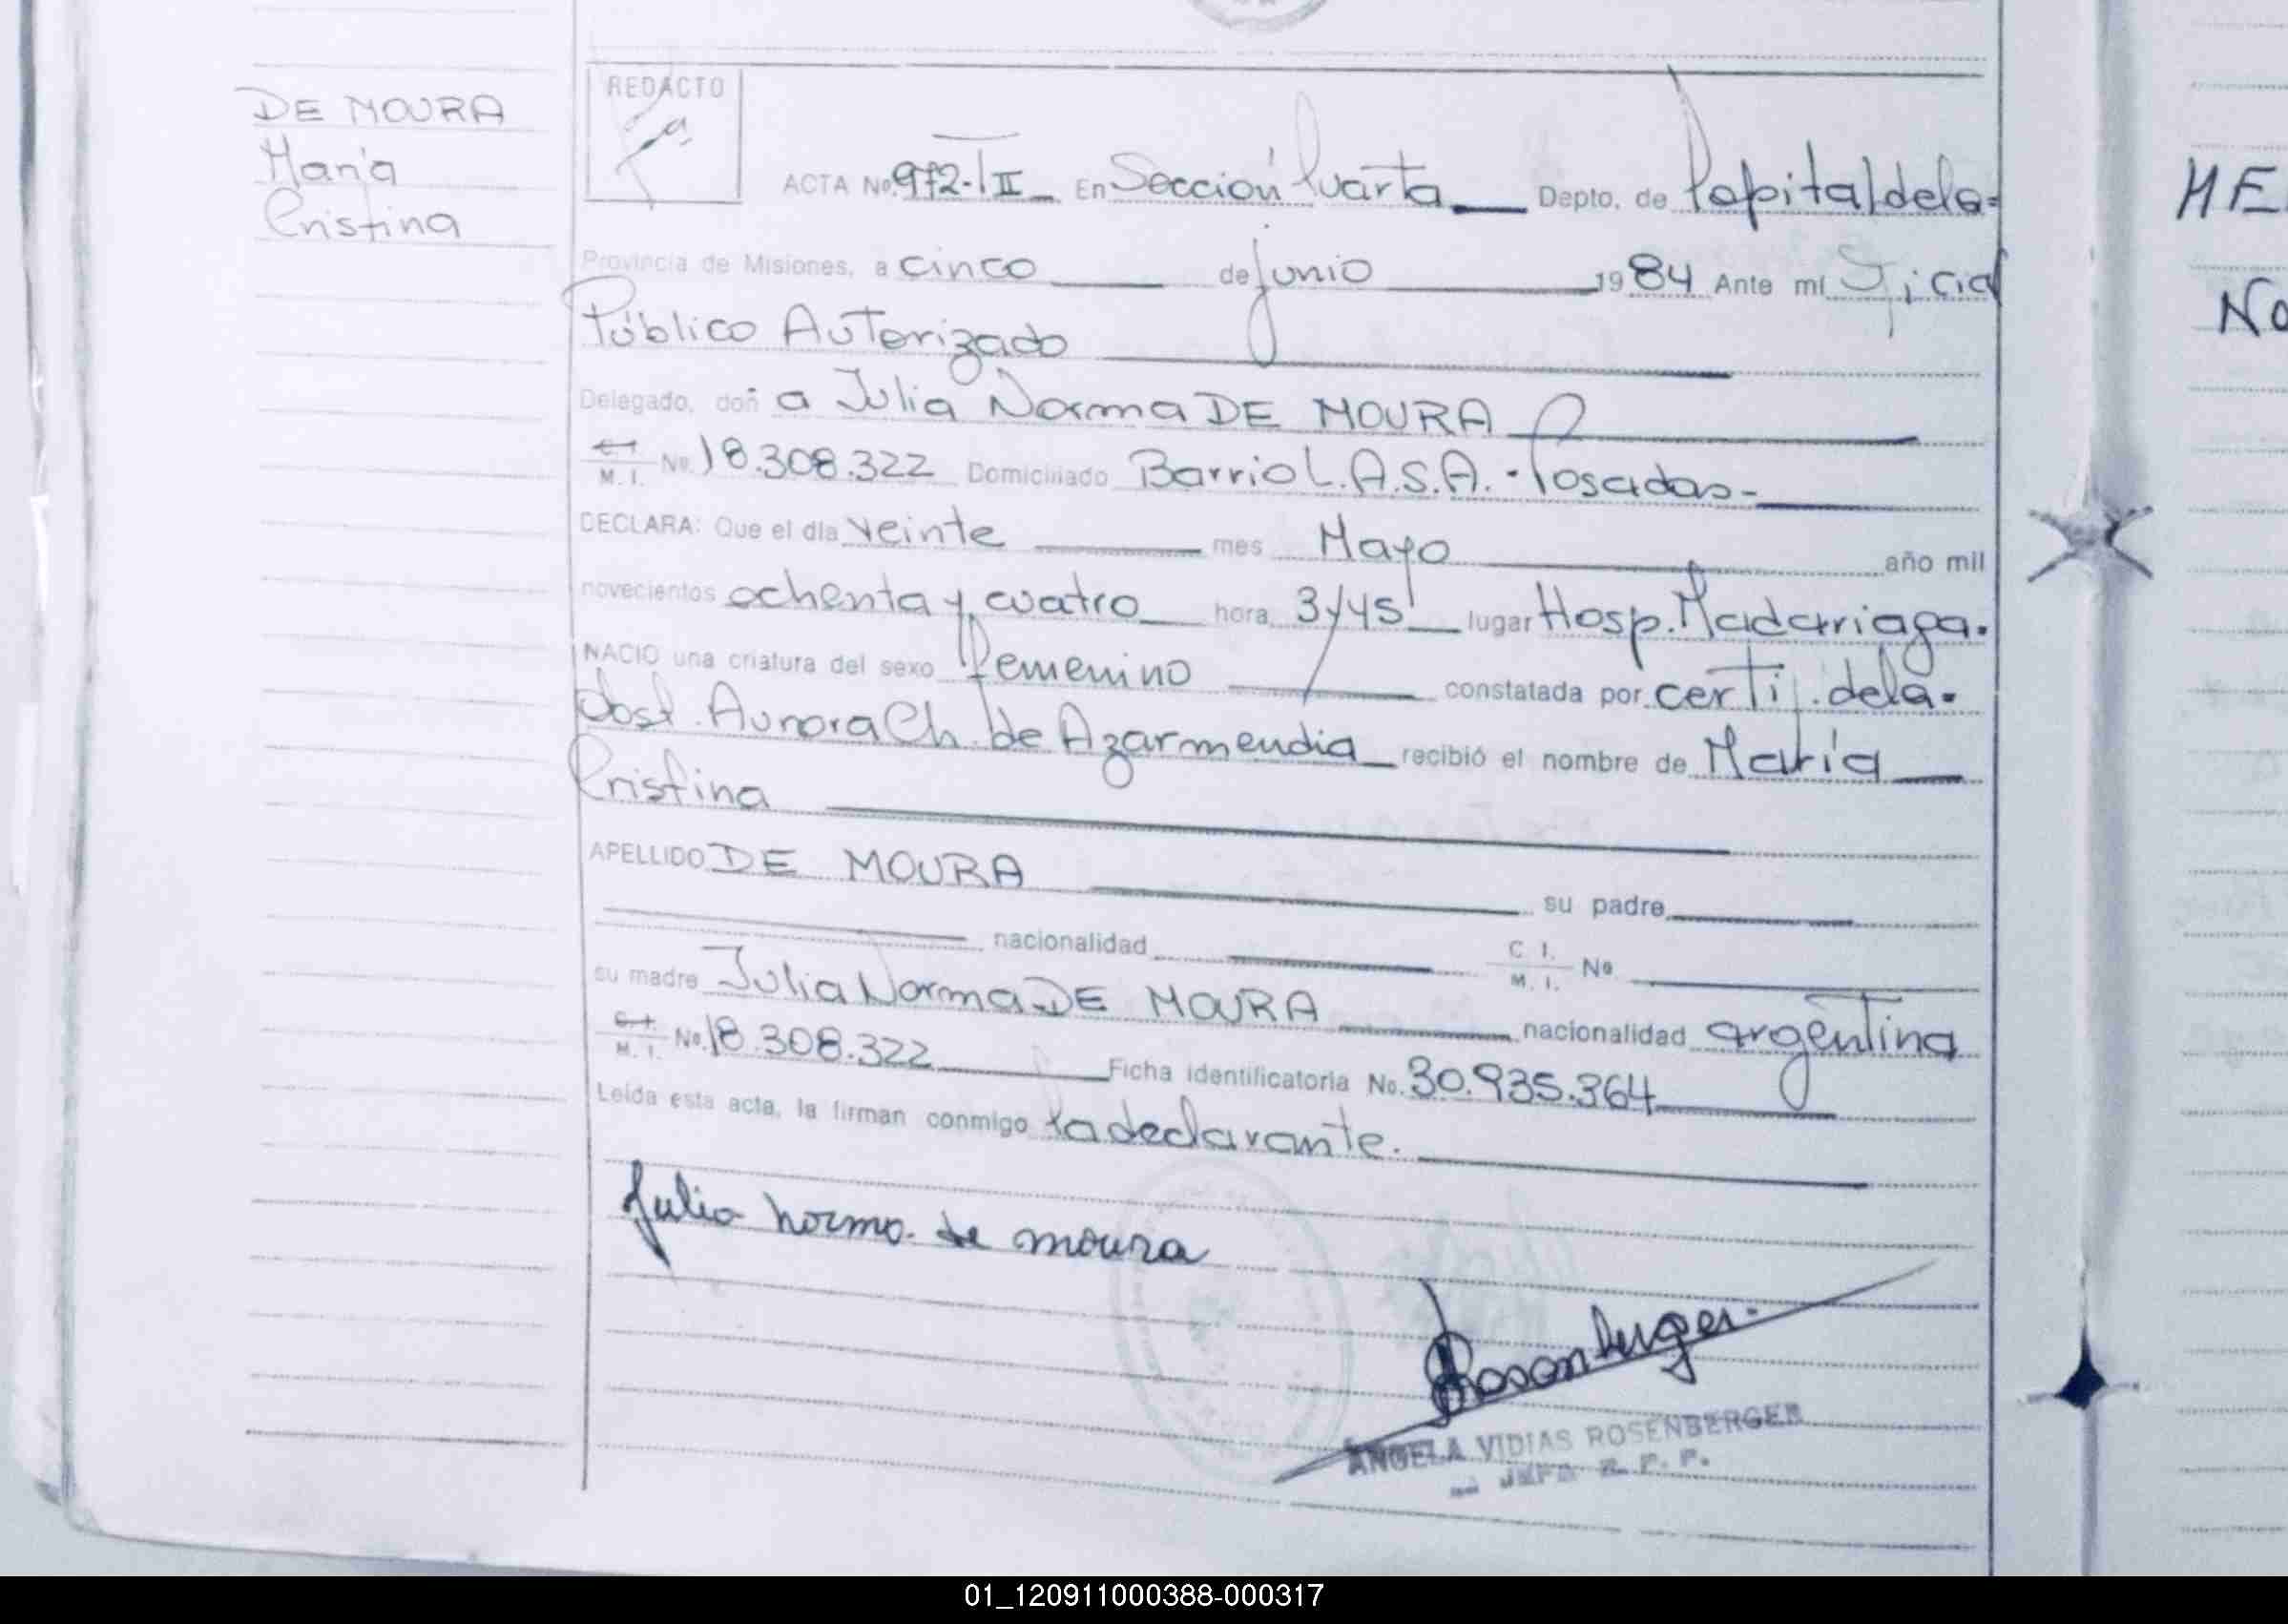 DE MOURA
María
Cristina
REDACTO
ACTA No. 972-TII_ En Sección Cuarta Depto. de Capital de la=
Provincia de Misiones, a cinco de junio 1984 Ante mí Oficial
Público Autorizado
Delegado, doñ a Julia Norma DE MOURA
C.I. M.I. No. 18.308.322 Domiciliado Barrio L.A.S.A. - Posadas-
DECLARA: Que el día veinte mes Mayo año mil
novecientos ochenta y cuatro hora 3y45' lugar Hosp. Madariaga.
NACIO una criatura del sexo femenino constatada por certif. de la-
obst. Aurora Ch. de Azarmendia recibió el nombre de María
Cristina
APELLIDO DE MOURA su padre
nacionalidad C. I. M. I. No
su madre Julia Norma DE MOURA nacionalidad argentina
C.I. M.I. No. 18.308.322 Ficha identificatoria No. 30.935.364
Leída esta acta, la firman conmigo la declarante.
Julia Norma de moura
Rosenberger
ANGELA VIDIAS ROSENBERGER
JEFA R. P. P.
HE
No
01_120911000388-000317